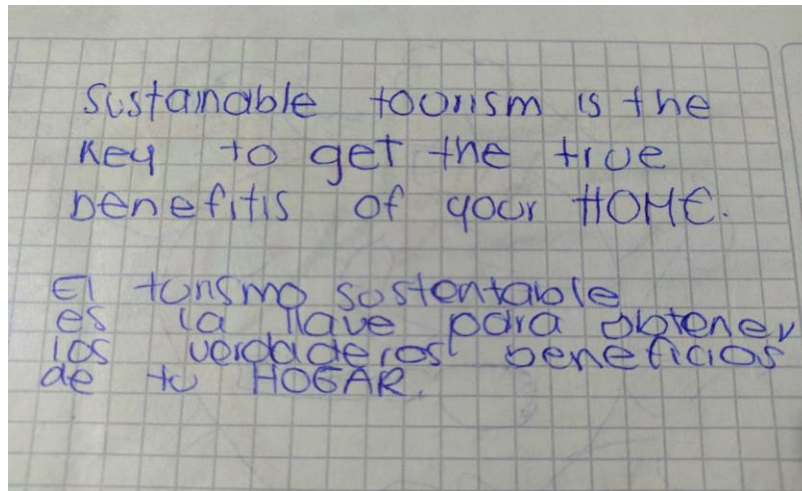 Sustainable tourism is the
Key to get the true
benefitis of your HOME.
El turismo sustentable
es la llave para obtener
los verdaderos beneficios
de tu HOGAR.